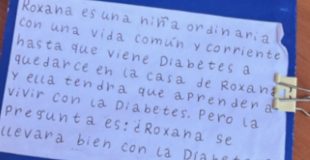 Roxana es una niña ordinaria
con una vida común y corriente
hasta que viene Diabetes a
quedarce en la casa de Roxana
y ella tendra que aprender a
vivir con la Diabetes. Pero la
pregunta es: ¿Roxana se
llevara bien con la